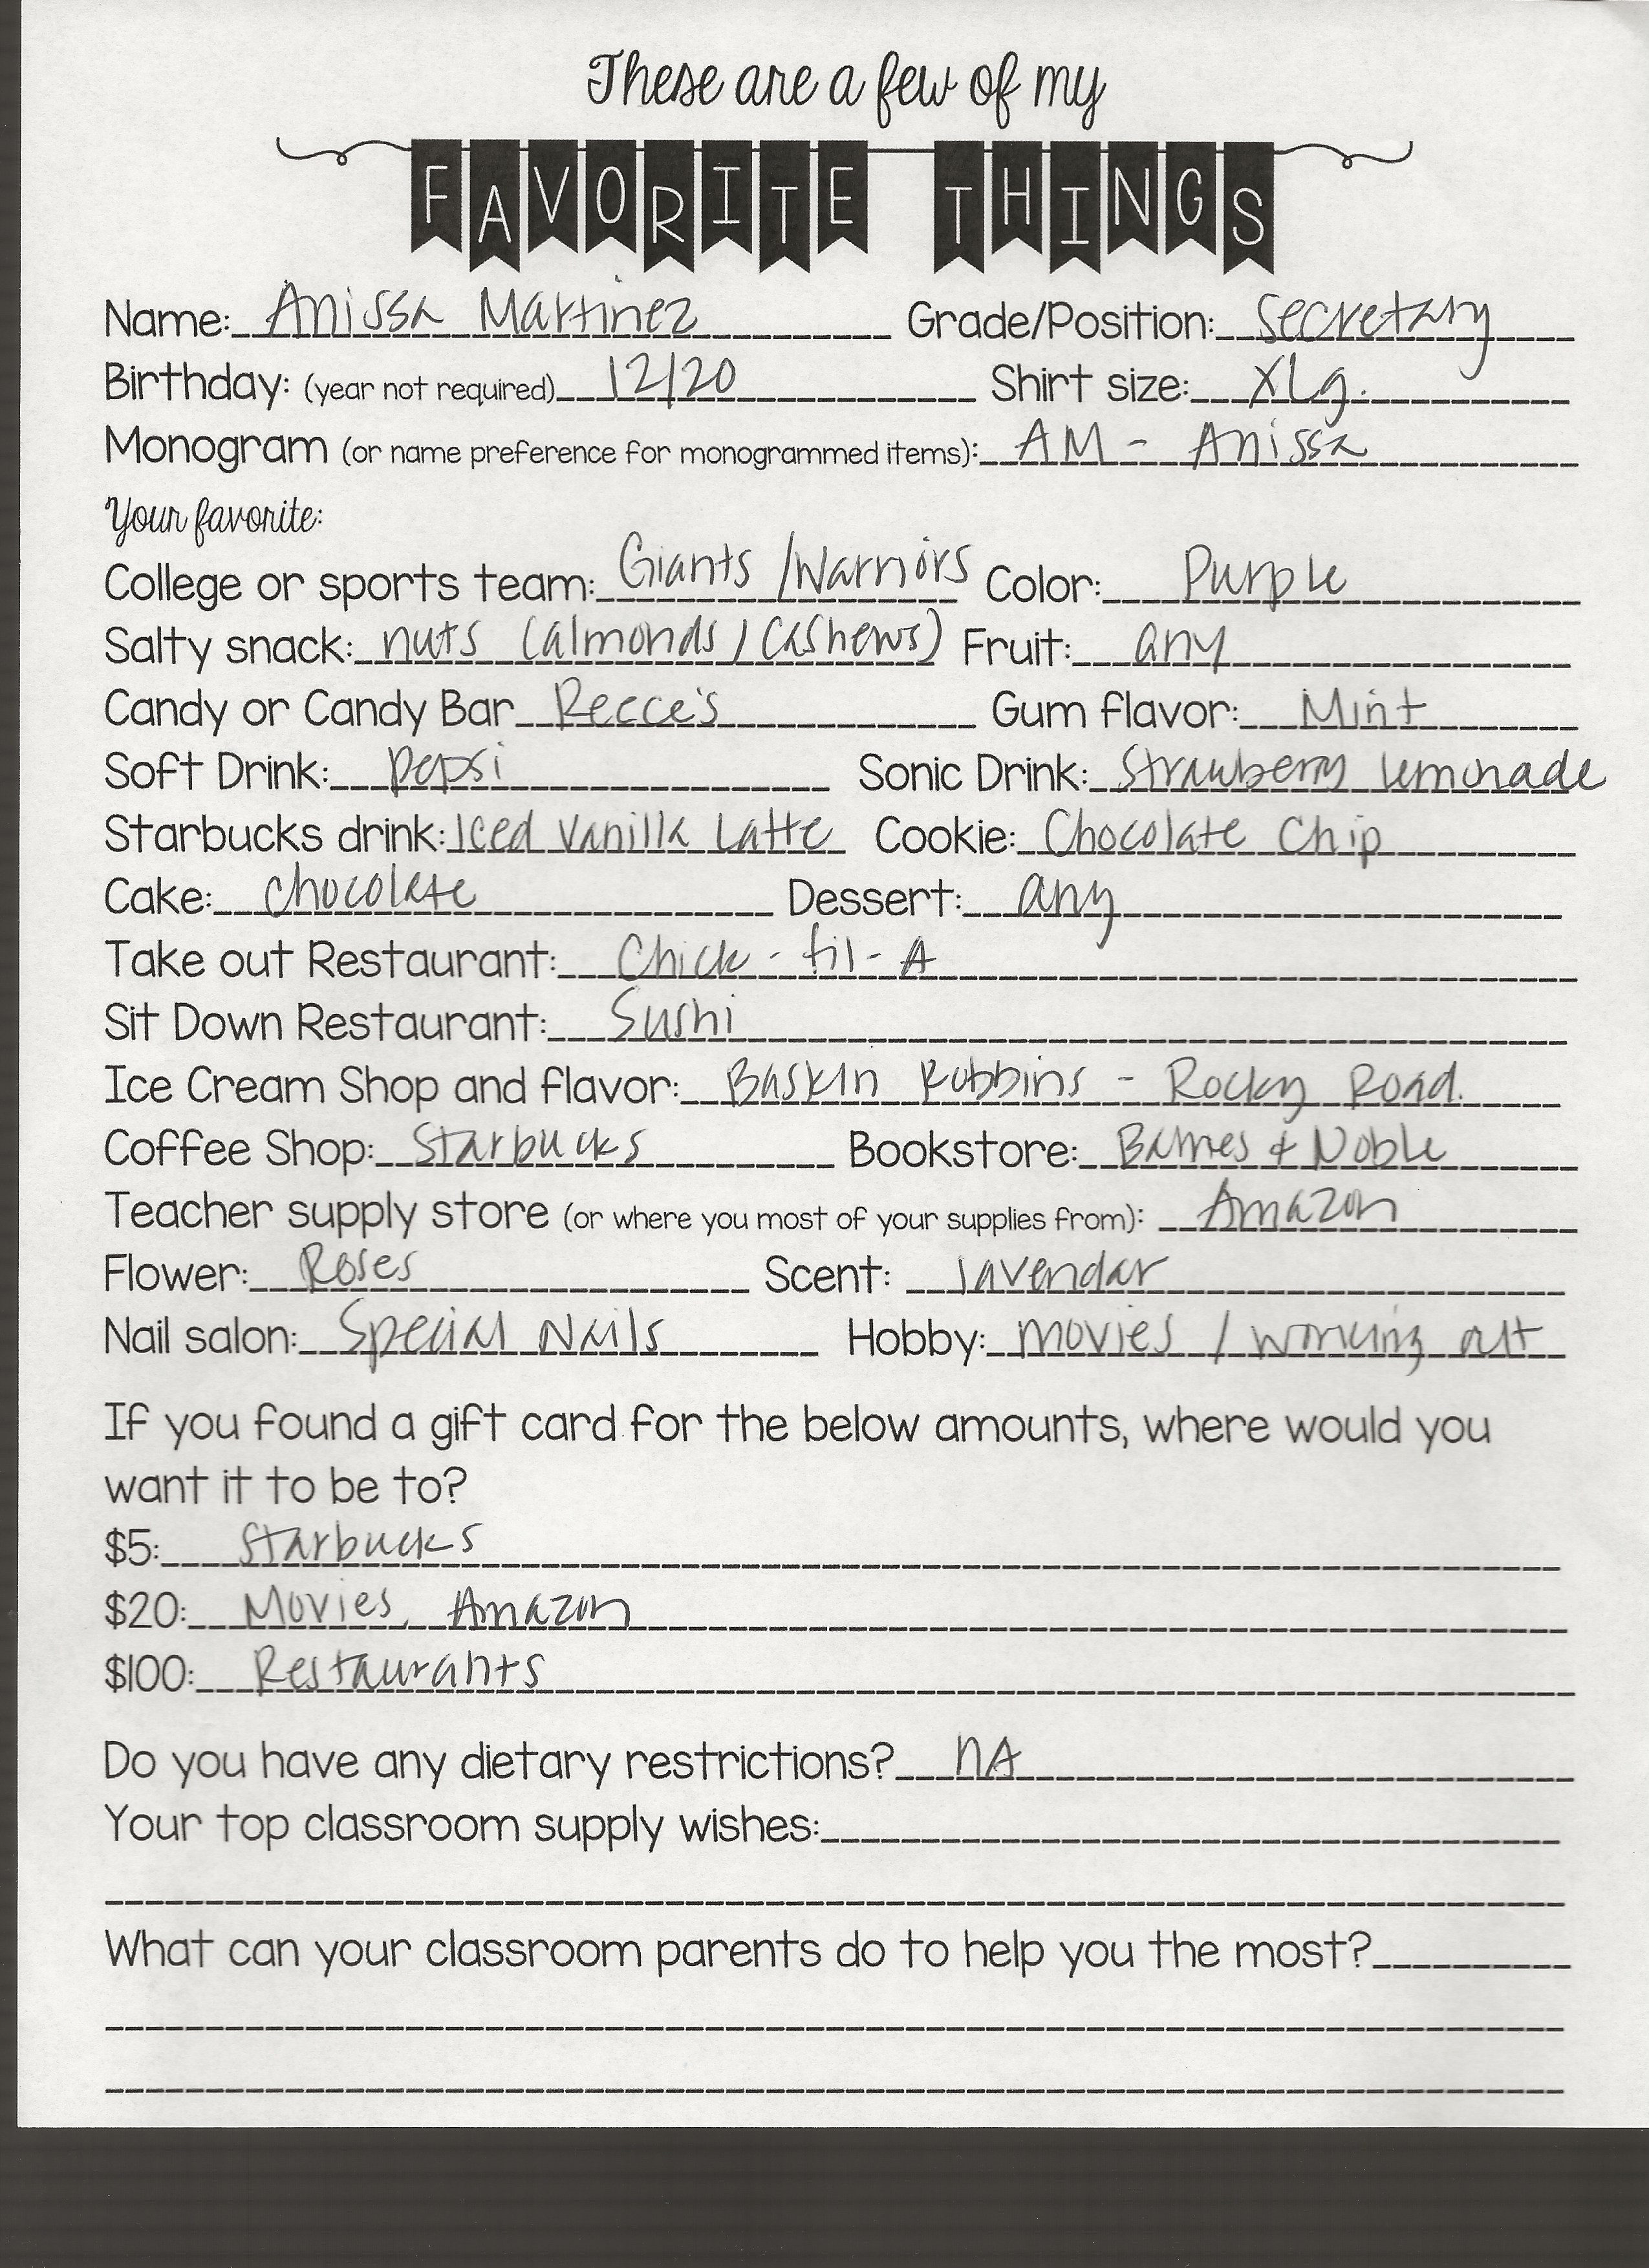 These are a few of my
FAVORITE THINGS
Name: Anissa Martinez Grade/Position: Secretary
Birthday: (year not required) 12/20 Shirt size: XLg.
Monogram (or name preference for monogrammed items): AM - Anissa
Your favorite:
College or sports team: Giants / Warriors Color: Purple
Salty snack: nuts (almonds / Cashews) Fruit: any
Candy or Candy Bar Recce's Gum flavor: Mint
Soft Drink: pepsi Sonic Drink: Strawberry lemonade
Starbucks drink: Iced Vanilla Latte Cookie: Chocolate Chip
Cake: chocolate Dessert: any
Take out Restaurant: Chick-fil-A
Sit Down Restaurant: Sushi
Ice Cream Shop and flavor: Baskin Robbins - Rocky Road.
Coffee Shop: Starbucks Bookstore: Barnes & Noble
Teacher supply store (or where you most of your supplies from): Amazon
Flower: Roses Scent: lavendar
Nail salon: Special Nails Hobby: movies / working out
If you found a gift card for the below amounts, where would you
want it to be to?
$5: Starbucks
$20: Movies, Amazon
$100: Restaurants
Do you have any dietary restrictions? nA
Your top classroom supply wishes:
What can your classroom parents do to help you the most?